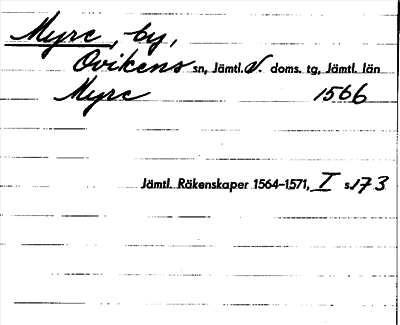 Myre, by,
Ovikens sn, Jämtl. V. doms. tg, Jämtl. län
Myre 1566
Jämtl. Räkenskaper 1564-1571, I s. 173